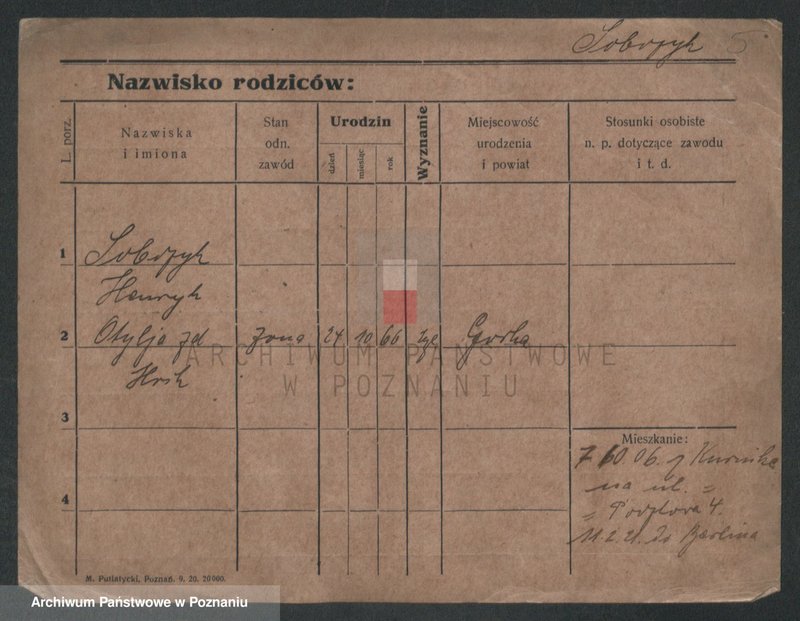 Sobczyk 5
Nazwisko rodziców:
L. porz.
Nazwiska
i imiona
Stan
odn.
zawód
Urodzin
dzień
miesiąc
rok
Wyznanie
Miejscowość
urodzenia
i powiat
Stosunki osobiste
n. p. dotyczące zawodu
i t. d.
1 Sobczyk
Henryk
2 Otylja zd żona 24 10 66 Gorka
ARCHIWUM PAŃSTWOWE
W POZNANIU
3
Mieszkanie:
7 10. 06. z Kurnika
na ul. "
" 4.
4
11.2.21. do Berlina
M. Putiatycki, Poznań. 9. 20. 20000.
Archiwum Państwowe w Poznaniu